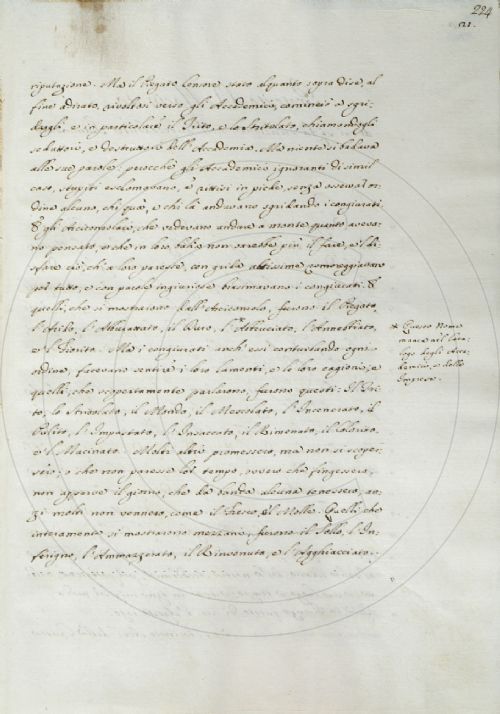 224
121.
riputazione. Ma il Regato Censore stato alquanto sopra di se, al
fine adirato, rivoltosi verso gli Accademici, cominciò a sgri-
dargli, e in particolare il Trito, e lo Stritolato, chiamandogli
sedattori, e destruttori dell'Accademia. Ma niente si badava
alle sue parole: perocchè gli Accademici ignoranti di simil
caso, stupiti esclamavano, e rittisi in piche, senza osservar or-
dine alcuno, chi quà, e chi là andavano sgridando i congiurati.
E gli Arciconsolari, che vedevano andare a monte quanto aveva-
no pensato, e che in loro balìa non sarebbe più il fare, e 'l di-
sfare ciò, ch'a loro paresse, con grida altissime romoreggiavano
per tutto, e con parole ingiuriose biasimavano i congiurati. E
quelli, che si mostrarono dall'Arciconsolo, furono il Regato,
l'Arido, l'Abburattato, il Duro, l'*Arrucciato, l'Annestato,
e 'l Fiorito. Ma i congiurati anch'essi confusando ogni
ordine, facevano sentire i loro lamenti, e le loro ragioni, e
quelli, che scopertamente parlarono, furono questi: Il Tri-
to, lo Stritolato, il Mondo, il Mescolato, l'Incenerato, il
Pulito, l'Impastato, l'Insaccato, il Rimenato, il Colorito,
e 'l Macinato. Molti altri promessero, ma non si scoper-
sero; o che non paresse lor tempo, ovvero che fingessero,
non apparve il giorno, che da banda alcuna tenessero, an-
zi molti non vennero, come il Fresco, e 'l Molle. Quelli, che
interamente si mostrarono mezzani, furono il Sollo, l'In-
ferigno, l'Ammazzerato, il Rinvenuto, e l'Agghiacciato.
* Questo Nome
manca nel Cata-
logo degli Acca-
demici, e delle
Imprese.